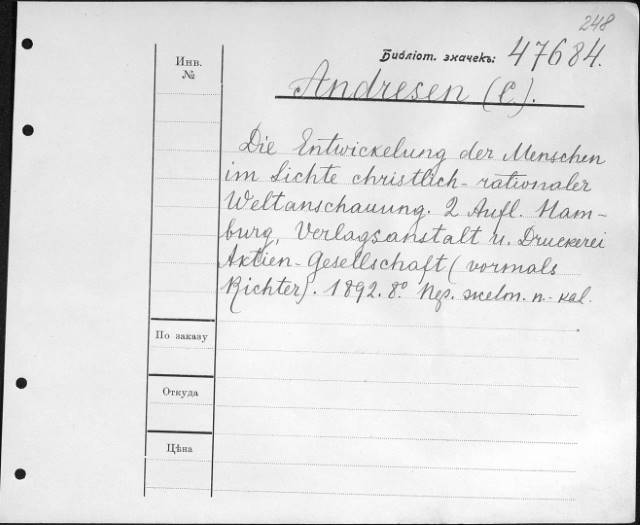 248
Инв.
№
Библіот. значекъ: 47684.
Andresen (C.).
Die Entwickelung der Menschen
im Lichte christlich-rationaler
Weltanschauung. 2 Aufl. Ham-
burg, Verlagsanstalt u. Druckerei
Aktien-Gesellschaft (vormals
Richter). 1892. 8º. Пер. желт. п.-кал.
По заказу
Откуда
Цѣна